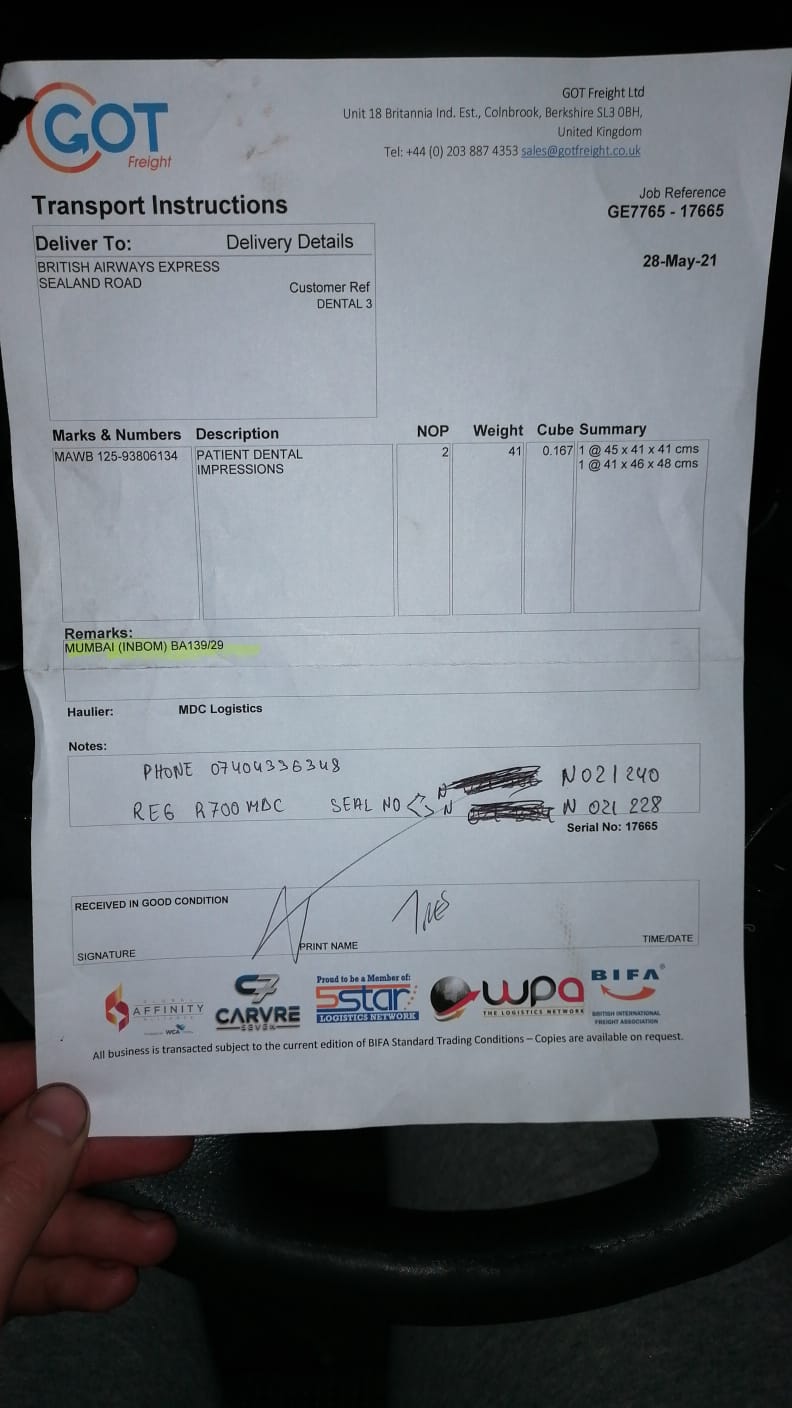 GOT
Freight
GOT Freight Ltd
Unit 18 Britannia Ind. Est., Colnbrook, Berkshire SL3 0BH,
United Kingdom
Tel: +44 (0) 203 887 4353 sales@gotfreight.co.uk
Transport Instructions
Job Reference
GE7765 - 17665
28-May-21
Deliver To: Delivery Details
BRITISH AIRWAYS EXPRESS
SEALAND ROAD
Customer Ref
DENTAL 3
Marks & Numbers Description NOP Weight Cube Summary
MAWB 125-93806134 PATIENT DENTAL 2 41 0.167 1 @ 45 x 41 x 41 cms
IMPRESSIONS 1 @ 41 x 46 x 48 cms
Remarks:
MUMBAI (INBOM) BA139/29
Haulier: MDC Logistics
Notes:
PHONE 07404336348 N N021240
REG R700 MDC SEAL NO N N 021 228
Serial No: 17665
RECEIVED IN GOOD CONDITION
SIGNATURE PRINT NAME TIME/DATE
AFFINITY
WCA
CARVRE
SEVEN
Proud to be a Member of:
5star
LOGISTICS NETWORK
wpa
THE LOGISTICS NETWORK
BIFA
BRITISH INTERNATIONAL
FREIGHT ASSOCIATION
All business is transacted subject to the current edition of BIFA Standard Trading Conditions – Copies are available on request.